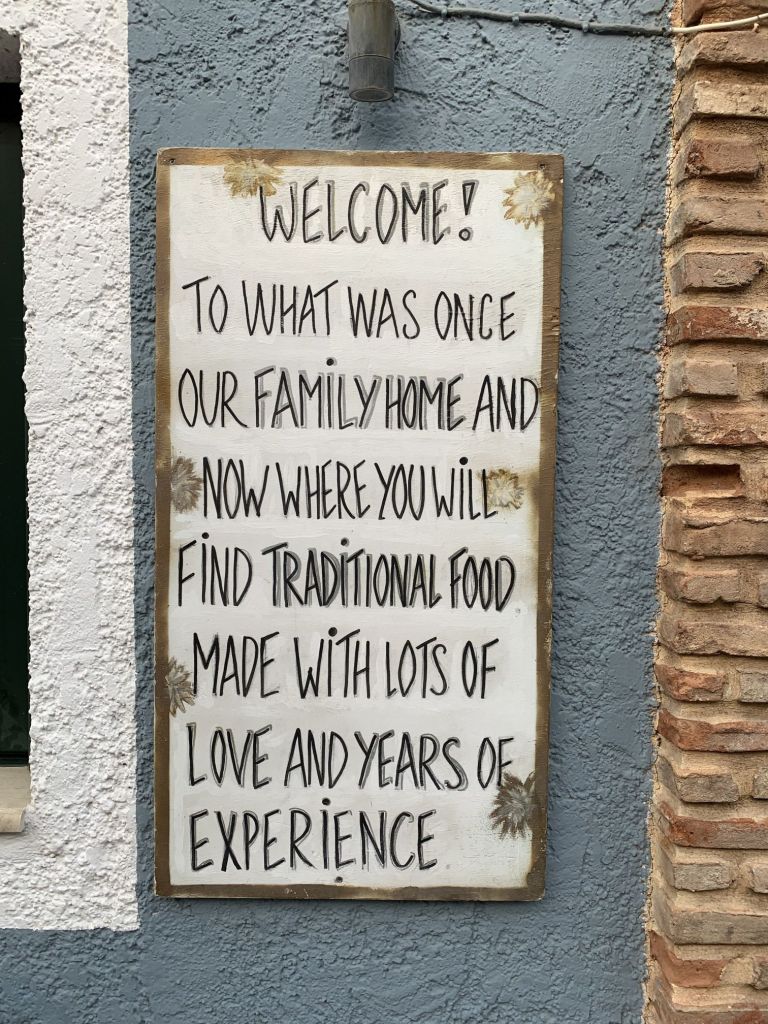 WELCOME!
TO WHAT WAS ONCE
OUR FAMILY HOME AND
NOW WHERE YOU WILL
FIND TRADITIONAL FOOD
MADE WITH LOTS OF
LOVE AND YEARS OF
EXPERIENCE